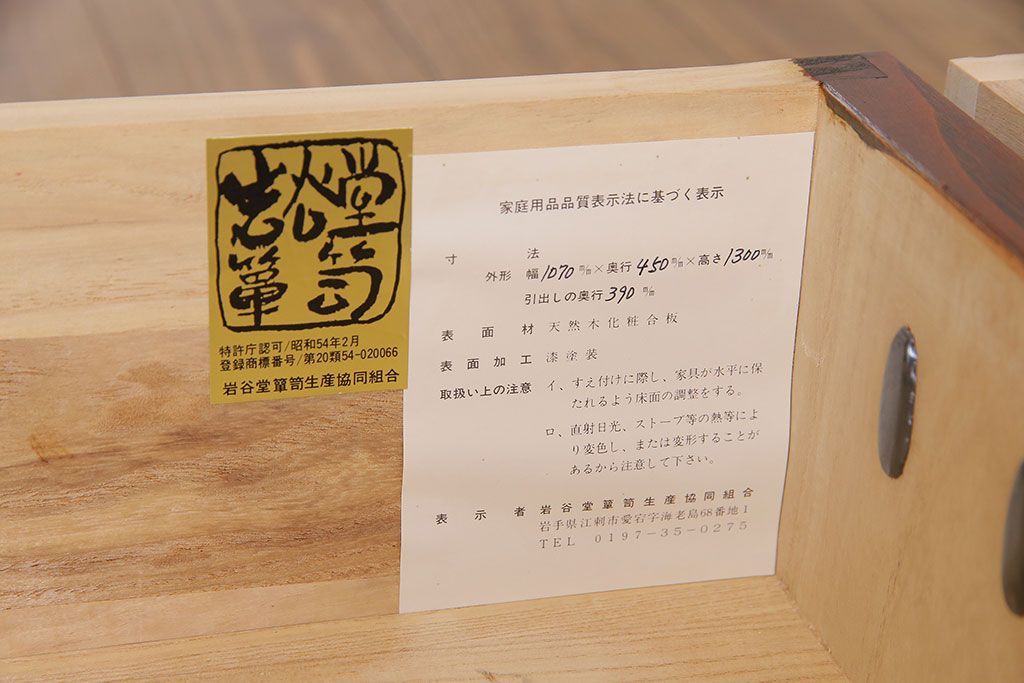 岩谷堂
簞笥
特許庁認可/昭和54年2月
登録商標番号/第20類54-020066
岩谷堂簞笥生産協同組合
家庭用品品質表示法に基づく表示
寸法
外形 幅1070 m/m×奥行450 m/m×高さ1300 m/m
引出しの奥行390 m/m
表面材 天然木化粧合板
表面加工 漆塗装
取扱い上の注意 イ、すえ付けに際し、家具が水平に保
たれるよう床面の調整をする。
ロ、直射日光、ストーブ等の熱等によ
り変色し、または変形することが
あるから注意して下さい。
表示者 岩谷堂簞笥生産協同組合
岩手県江刺市愛宕字海老島68番地1
TEL 0197-35-0275